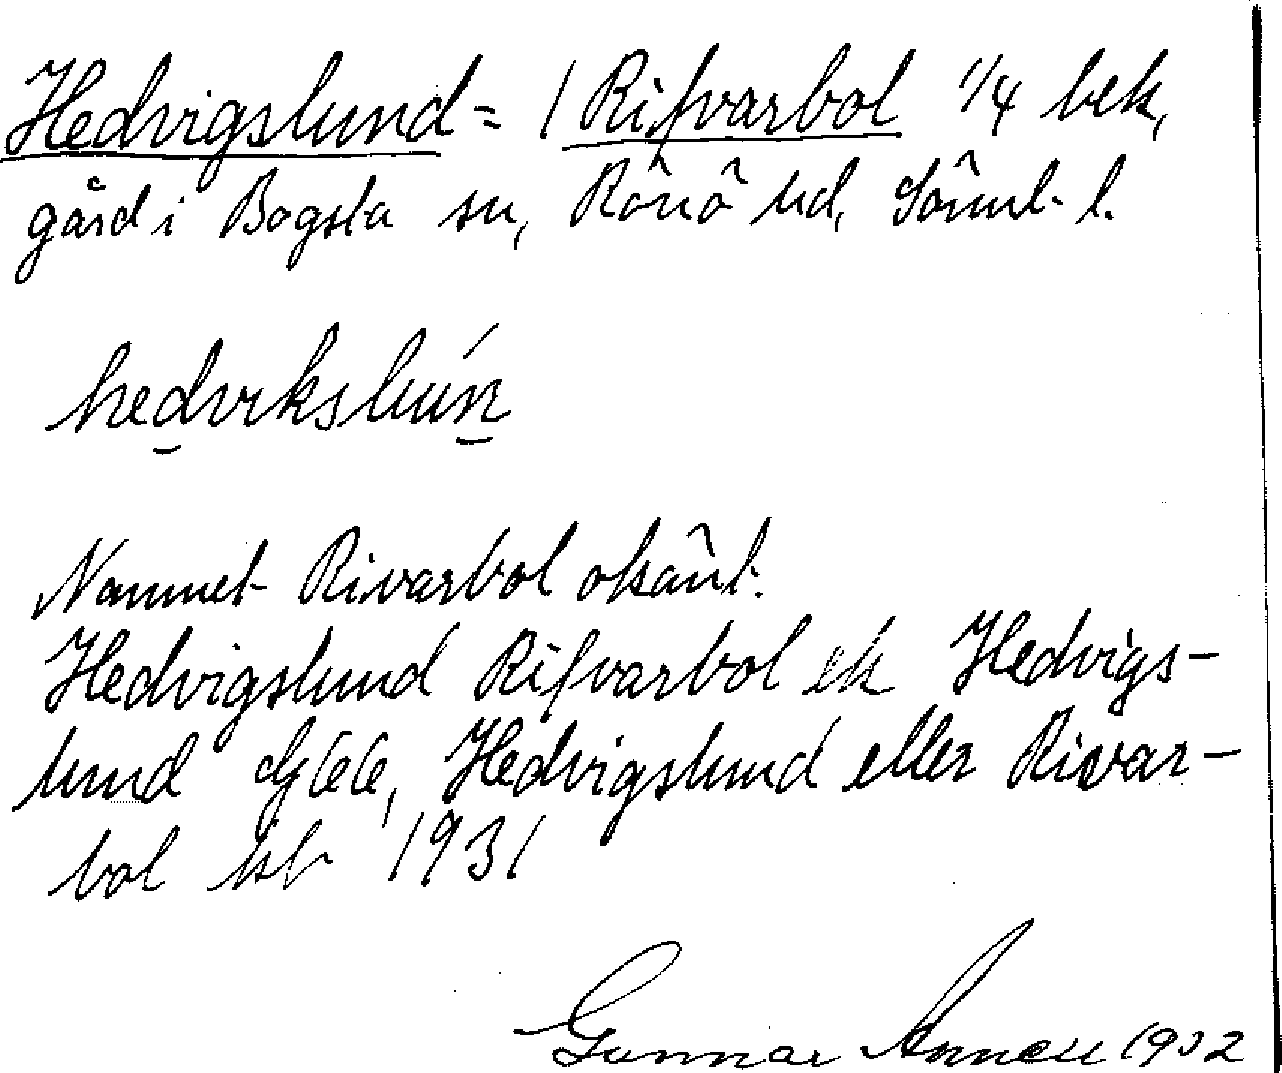 Hedvigslund = / Rifvarbol 1/4 bek,
gård i Bogsta sn, Rönö hd, Sörml. l.
hedvikslun
Namnet Rivarbol okänt.
Hedvigslund Rifvarbol ek Hedvigs-
lund GEG, Hedvigslund eller Rivar-
bol 1931
Gunnar 1932